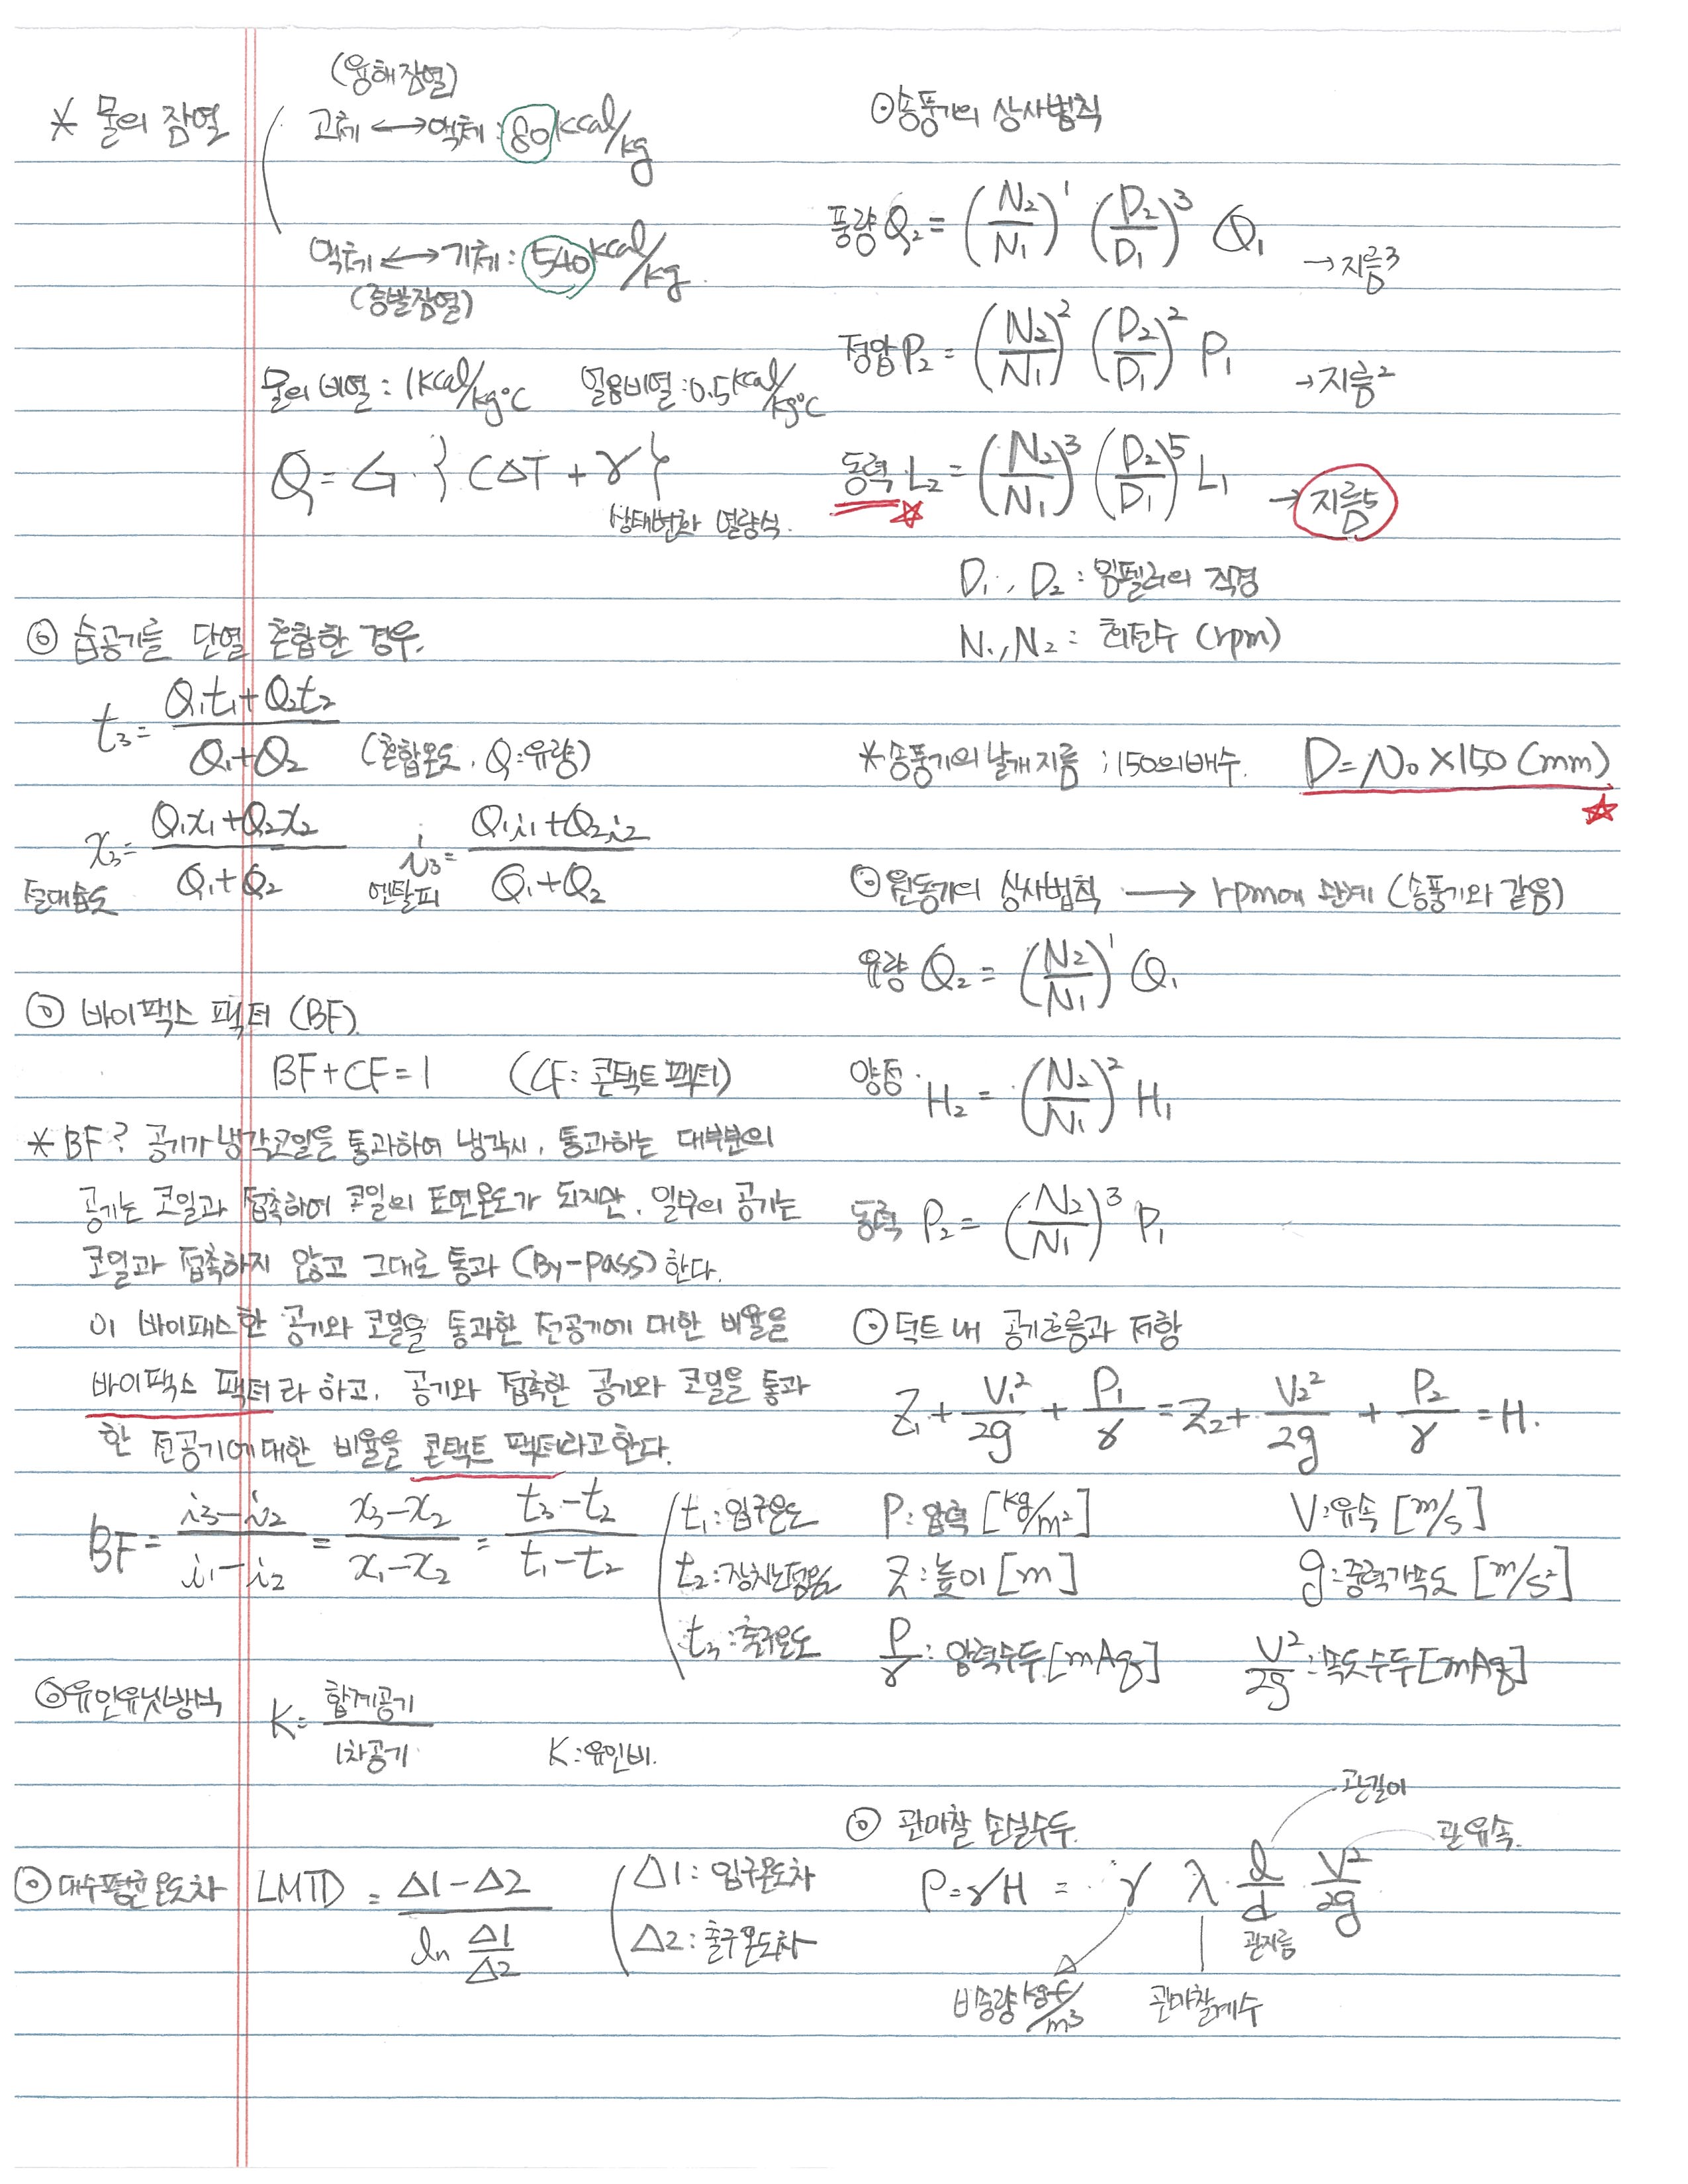 * 물의 잠열
(융해잠열)
고체 ↔ 액체 : 80 kcal/kg
액체 ↔ 기체 : 540 kcal/kg
(증발잠열)
물의 비열 : 1 kcal/kg℃ 얼음비열 : 0.5 kcal/kg℃
Q = G · { CΔT + γ }
상태변화 열량식.
◎ 습공기를 단열 혼합한 경우.
t₃ = (Q₁t₁+Q₂t₂)/(Q₁+Q₂) (혼합온도, Q:유량)
x₃ = (Q₁x₁+Q₂x₂)/(Q₁+Q₂) i₃ = (Q₁i₁+Q₂i₂)/(Q₁+Q₂)
절대습도 엔탈피
◎ 바이팩스 팩터 (BF).
BF+CF=1 (CF: 콘택트 팩터)
* BF? 공기가 냉각코일을 통과하여 냉각시, 통과하는 대부분의
공기는 코일과 접촉하여 코일의 표면온도가 되지만, 일부의 공기는
코일과 접촉하지 않고 그대로 통과 (By-pass) 한다.
이 바이패스한 공기와 코일을 통과한 전공기에 대한 비율을
바이팩스 팩터라 하고, 공기와 접촉한 공기와 코일을 통과
한 전공기에 대한 비율을 콘택트 팩터라고 한다.
BF = (i₃-i₂)/(i₁-i₂) = (x₃-x₂)/(x₁-x₂) = (t₃-t₂)/(t₁-t₂)
t₁: 입구온도
t₂: 장치노점온도
t₃: 출구온도
◎ 유인유닛방식 K = 합계공기/1차공기 K: 유인비.
◎ 대수평균온도차 LMTD = (Δ1-Δ2)/(ln Δ1/Δ2)
Δ1: 입구온도차
Δ2: 출구온도차
◎ 송풍기의 상사법칙
풍량 Q₂ = (N₂/N₁)¹ (D₂/D₁)³ Q₁ → 지름³ D
정압 P₂ = (N₂/N₁)² (D₂/D₁)² P₁ → 지름²
동력 L₂ = (N₂/N₁)³ (D₂/D₁)⁵ L₁ → 지름5 D
D₁, D₂ : 임펠러의 직경
N₁, N₂ : 회전수 (rpm)
* 송풍기의 날개지름 ; 150의 배수. D = No × 150 (mm)
◎ 원동기의 상사법칙 → rpm에 관계 (송풍기와 같음)
유량 Q₂ = (N₂/N₁)¹ Q₁
양정 H₂ = (N₂/N₁)² H₁
동력 P₂ = (N₂/N₁)³ P₁
◎ 덕트 내 공기흐름과 저항
Z₁ + V₁²/2g + P₁/γ = Z₂ + V₂²/2g + P₂/γ = H.
P: 압력 [kg/m²] V: 유속 [m/s]
Z: 높이 [m] g: 중력가속도 [m/s²]
P/γ: 압력수두 [mAq] V²/2g: 속도수두 [mAq]
◎ 관마찰 손실수두.
관길이
관유속.
P = γH = γ λ · l/d · V²/2g
관지름
비중량 kgf/m³ 관마찰계수